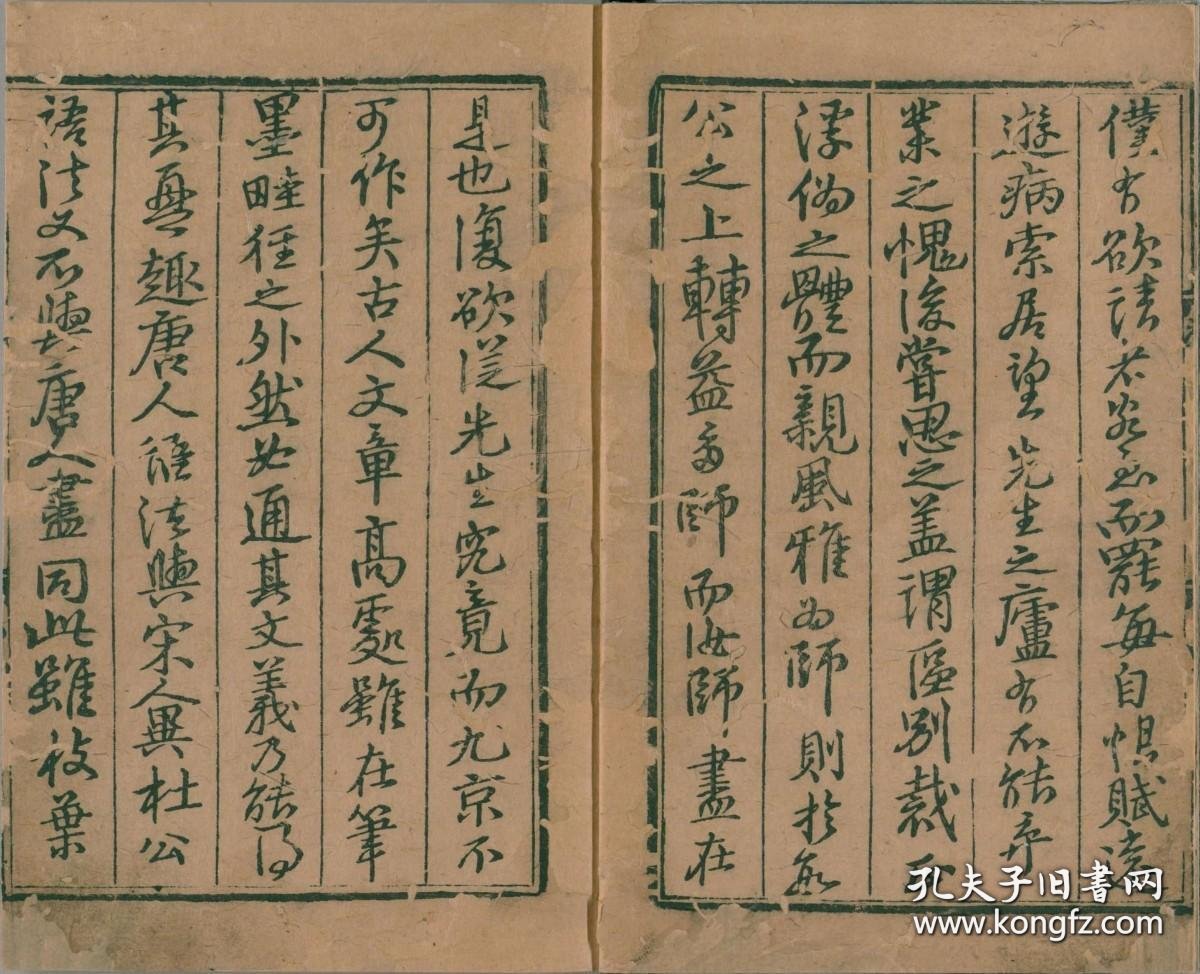 僕有欲請不答至而罷每自恨賦遠
遊病索居望先生之廬有不能棄
業之愧後嘗思之蓋謂區別裁
浮偽之體而親風雅為師則於
公之上轉益多師而汝師盡在
是也復欲從先生究竟而九京不
可作矣古人文章高處雖在筆
墨畦徑之外然必通其文義乃能得
其興趣唐人語法與宋人異杜公
語法又不與唐人盡同此雖枝葉
孔夫子旧书网
www.kongfz.com